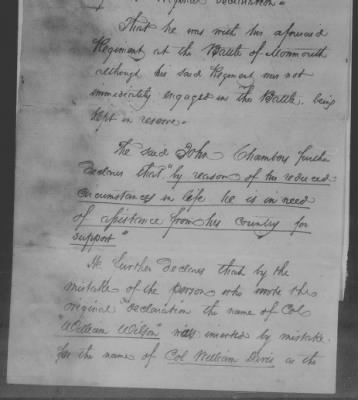 original declaration.
That he was with his aforesaid
Regiment at the Battle of Monmouth
although his said Regiment was not
immediately engaged in the Battle, being
kept in reserve.
The said John Chambers further
declares that "by reason of his reduced
circumstances in life he is in need
of assistance from his Country for
support"
He further declares that by the
mistake of the person who wrote the
original declaration the name of Col
William Wilson was inserted by mistake
for the name of Col William Davis as the